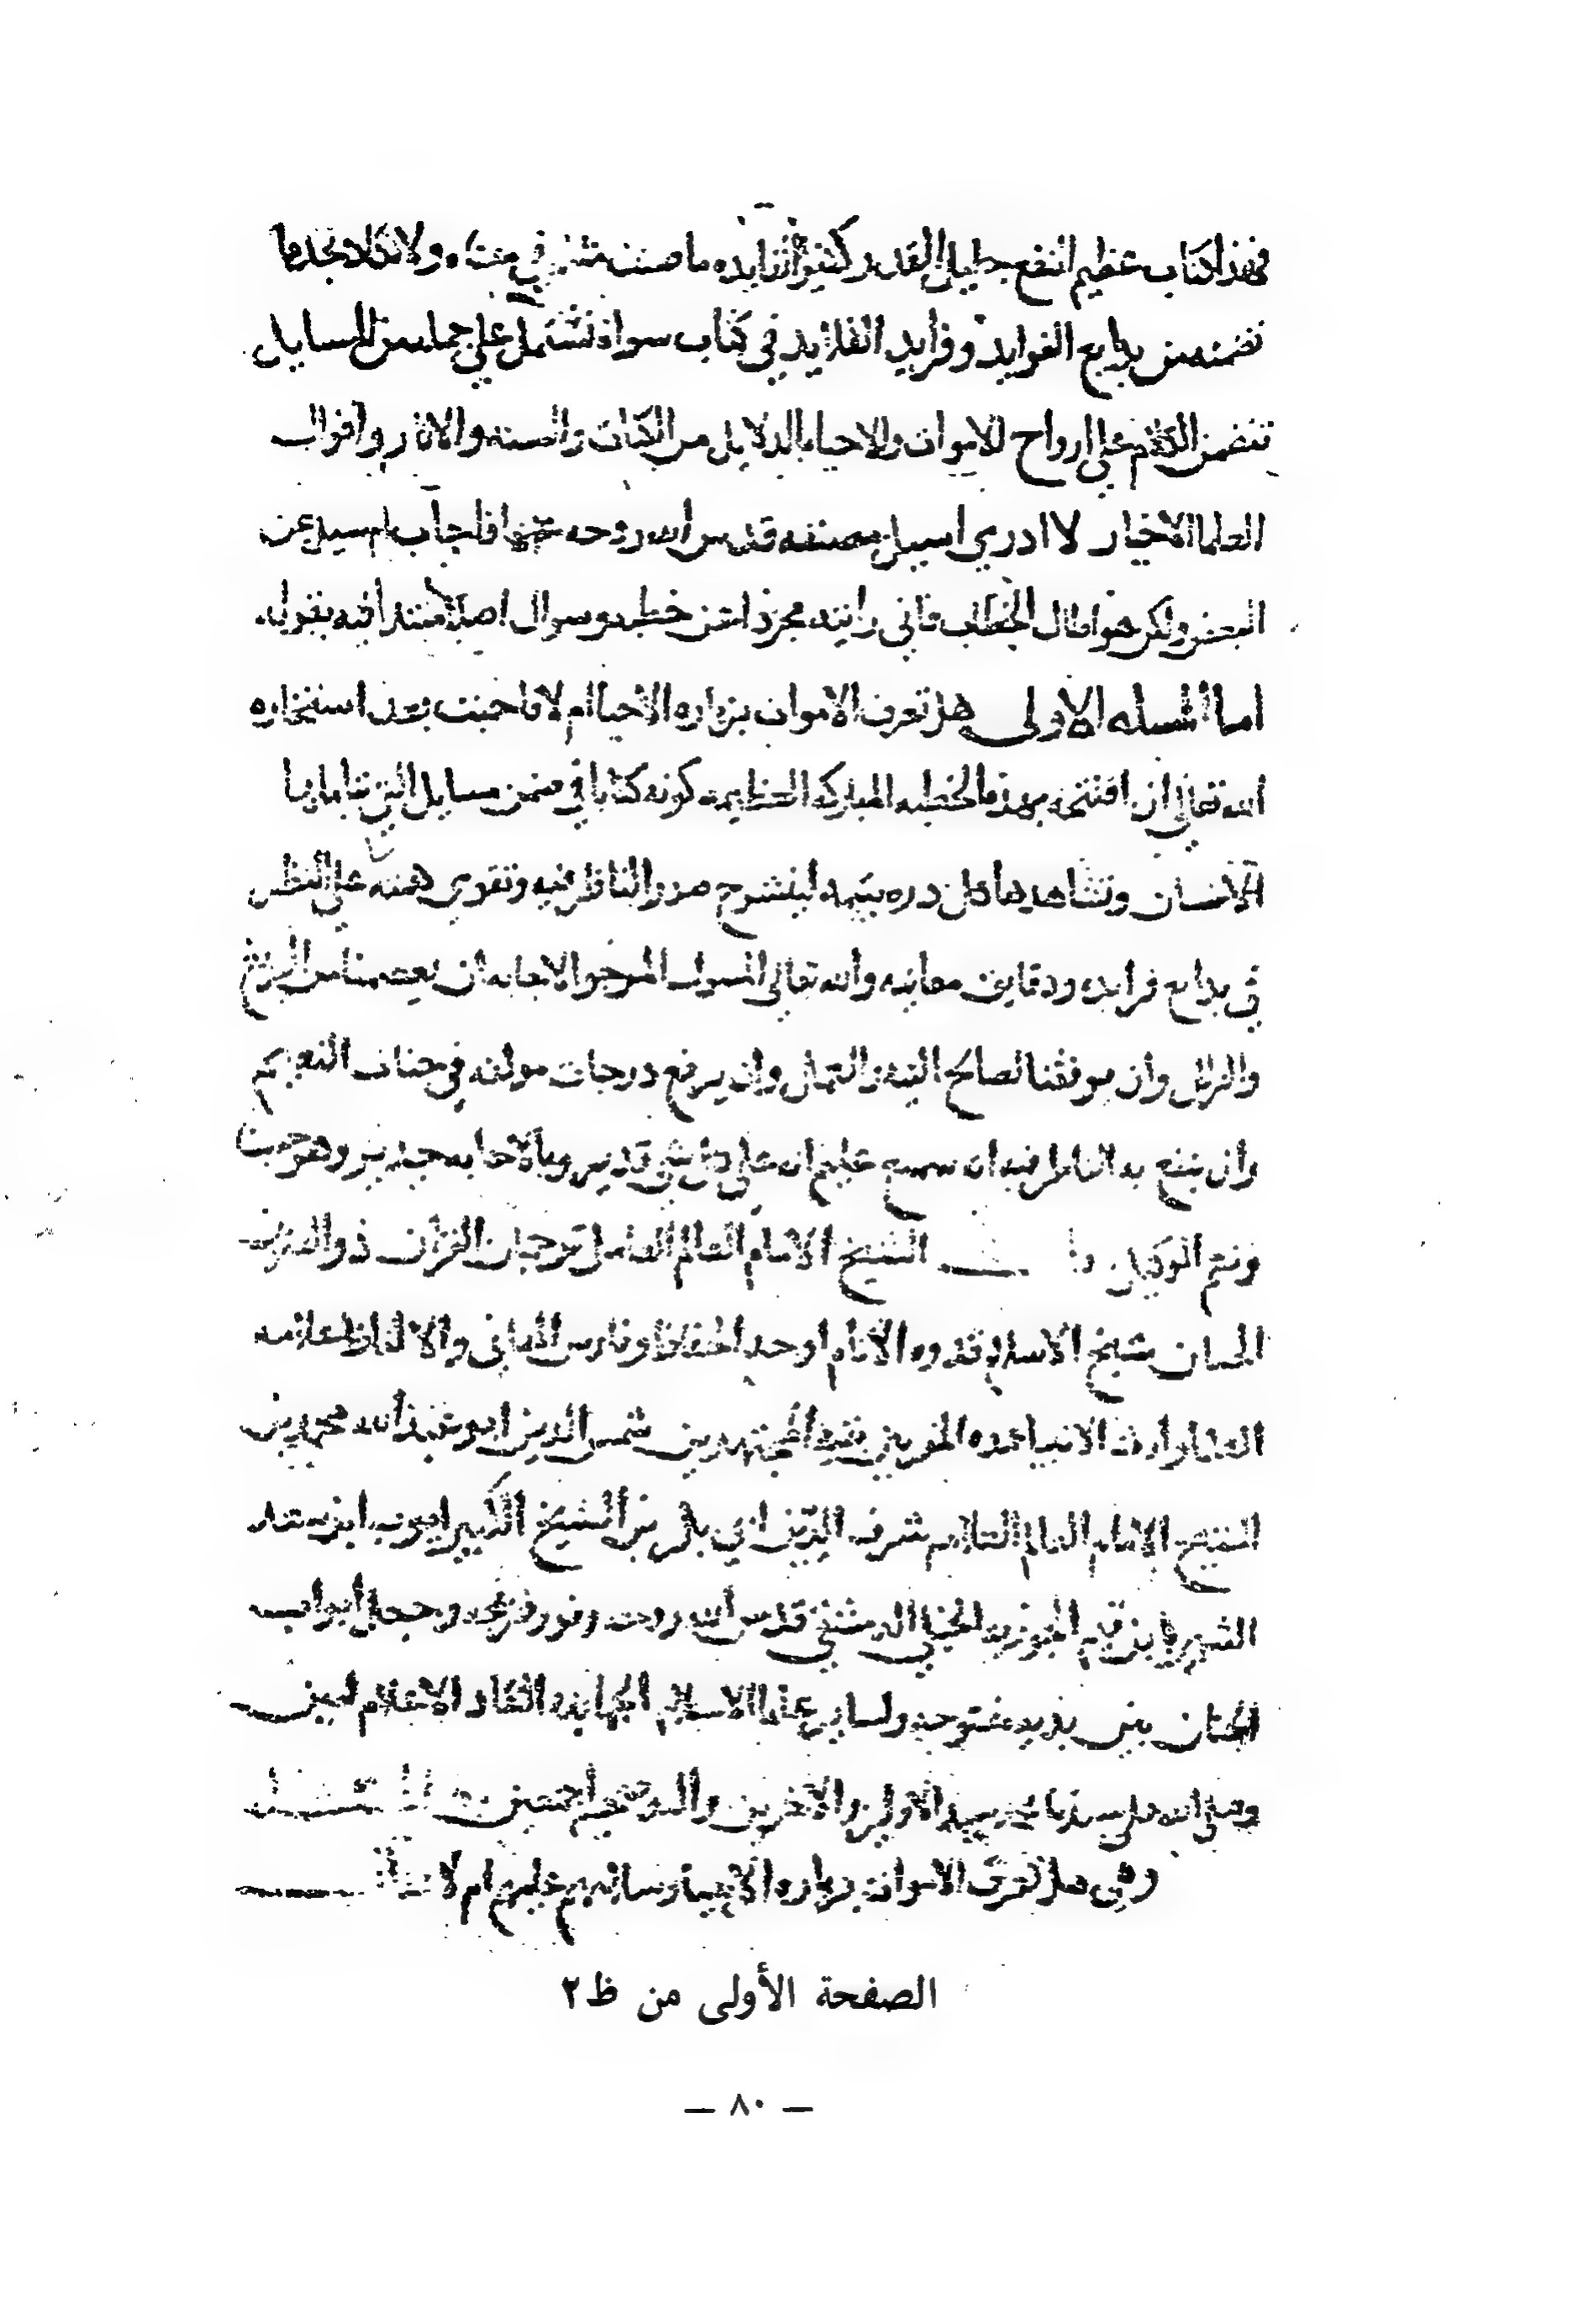 فهذا كتاب عظيم النفع جليل القدر كثير الفايده ما صنف مثله في معناه ولا تكاد تجد ما
تضمنه من بدايع الفوايد وفرايد القلايد في كتاب سواه تشتمل علي جمله من المسايل
تتضمن الكلام علي ارواح الاموات والاحياء بالدلايل من الكتاب والسنه والاثار واقوال
العلما الاخيار لا ادري اسيل مصنفه قدس الله روحه عنها فاجاب ام سيل عن
البعض ولكن هو اطال الخطاب فاني رايته مجردا عن خطبه وسوال اصلا مبتدا فيه بقوله
اما المسله الاولي هل تعرف الاموات بزياره الاحيا ام لا فاحببت بعد استخاره
الله تعالي ان افتتحه بهذه الخطبه المباركه العظيمه كونه كتابا في ضمن مسايل التي تاملها
الانسان وتشاهدها كل دره يتيمه لينشرح صدر الناظر فيه وتقوي همته علي النظر
في بدايع فرايده ودقايق معانيه والله تعالي المسول المرجو الاجابه ان يعصمنا من الزيغ
والزلل وان يوفقنا لصالح النيه والعمل وان يرفع درجات مولفه في جنات النعيم
وان ينفع به الناظر فيه انه سميع عليم انه علي كل شي قدير وبالاجابه جدير وهو حسبنا
ونعم الوكيل الشيخ الامام العالم العامل ترجمان القران ذو الفنون
الحسان شيخ الاسلام قدوه الانام اوحد الحفاظ وفارس المعاني والالفاظ علامه
العلما وارث الانبيا عمده المفسرين بقيه المجتهدين شمس الدين ابو عبد الله محمد بن
الشيخ الامام العالم العلامه شرف الدين ابي بكر بن الشيخ الكبير ايوب ابن سعد
الشهير بابن قيم الجوزيه الحنبلي الدمشقي قدس الله روحه ونور ضريحه وجعل ابواب
الجنان بين يديه مفتوحه ولساير علما الاسلام الجهابذه النقاد الاعلام امين
وصلي الله علي سيدنا محمد سيد الاولين والاخرين واله وصحبه اجمعين
وهي هل تعرف الاموات بزياره الاحيا وسلامهم عليهم ام لا
الصفحة الأولى من ظ٢
— ٨٠ —